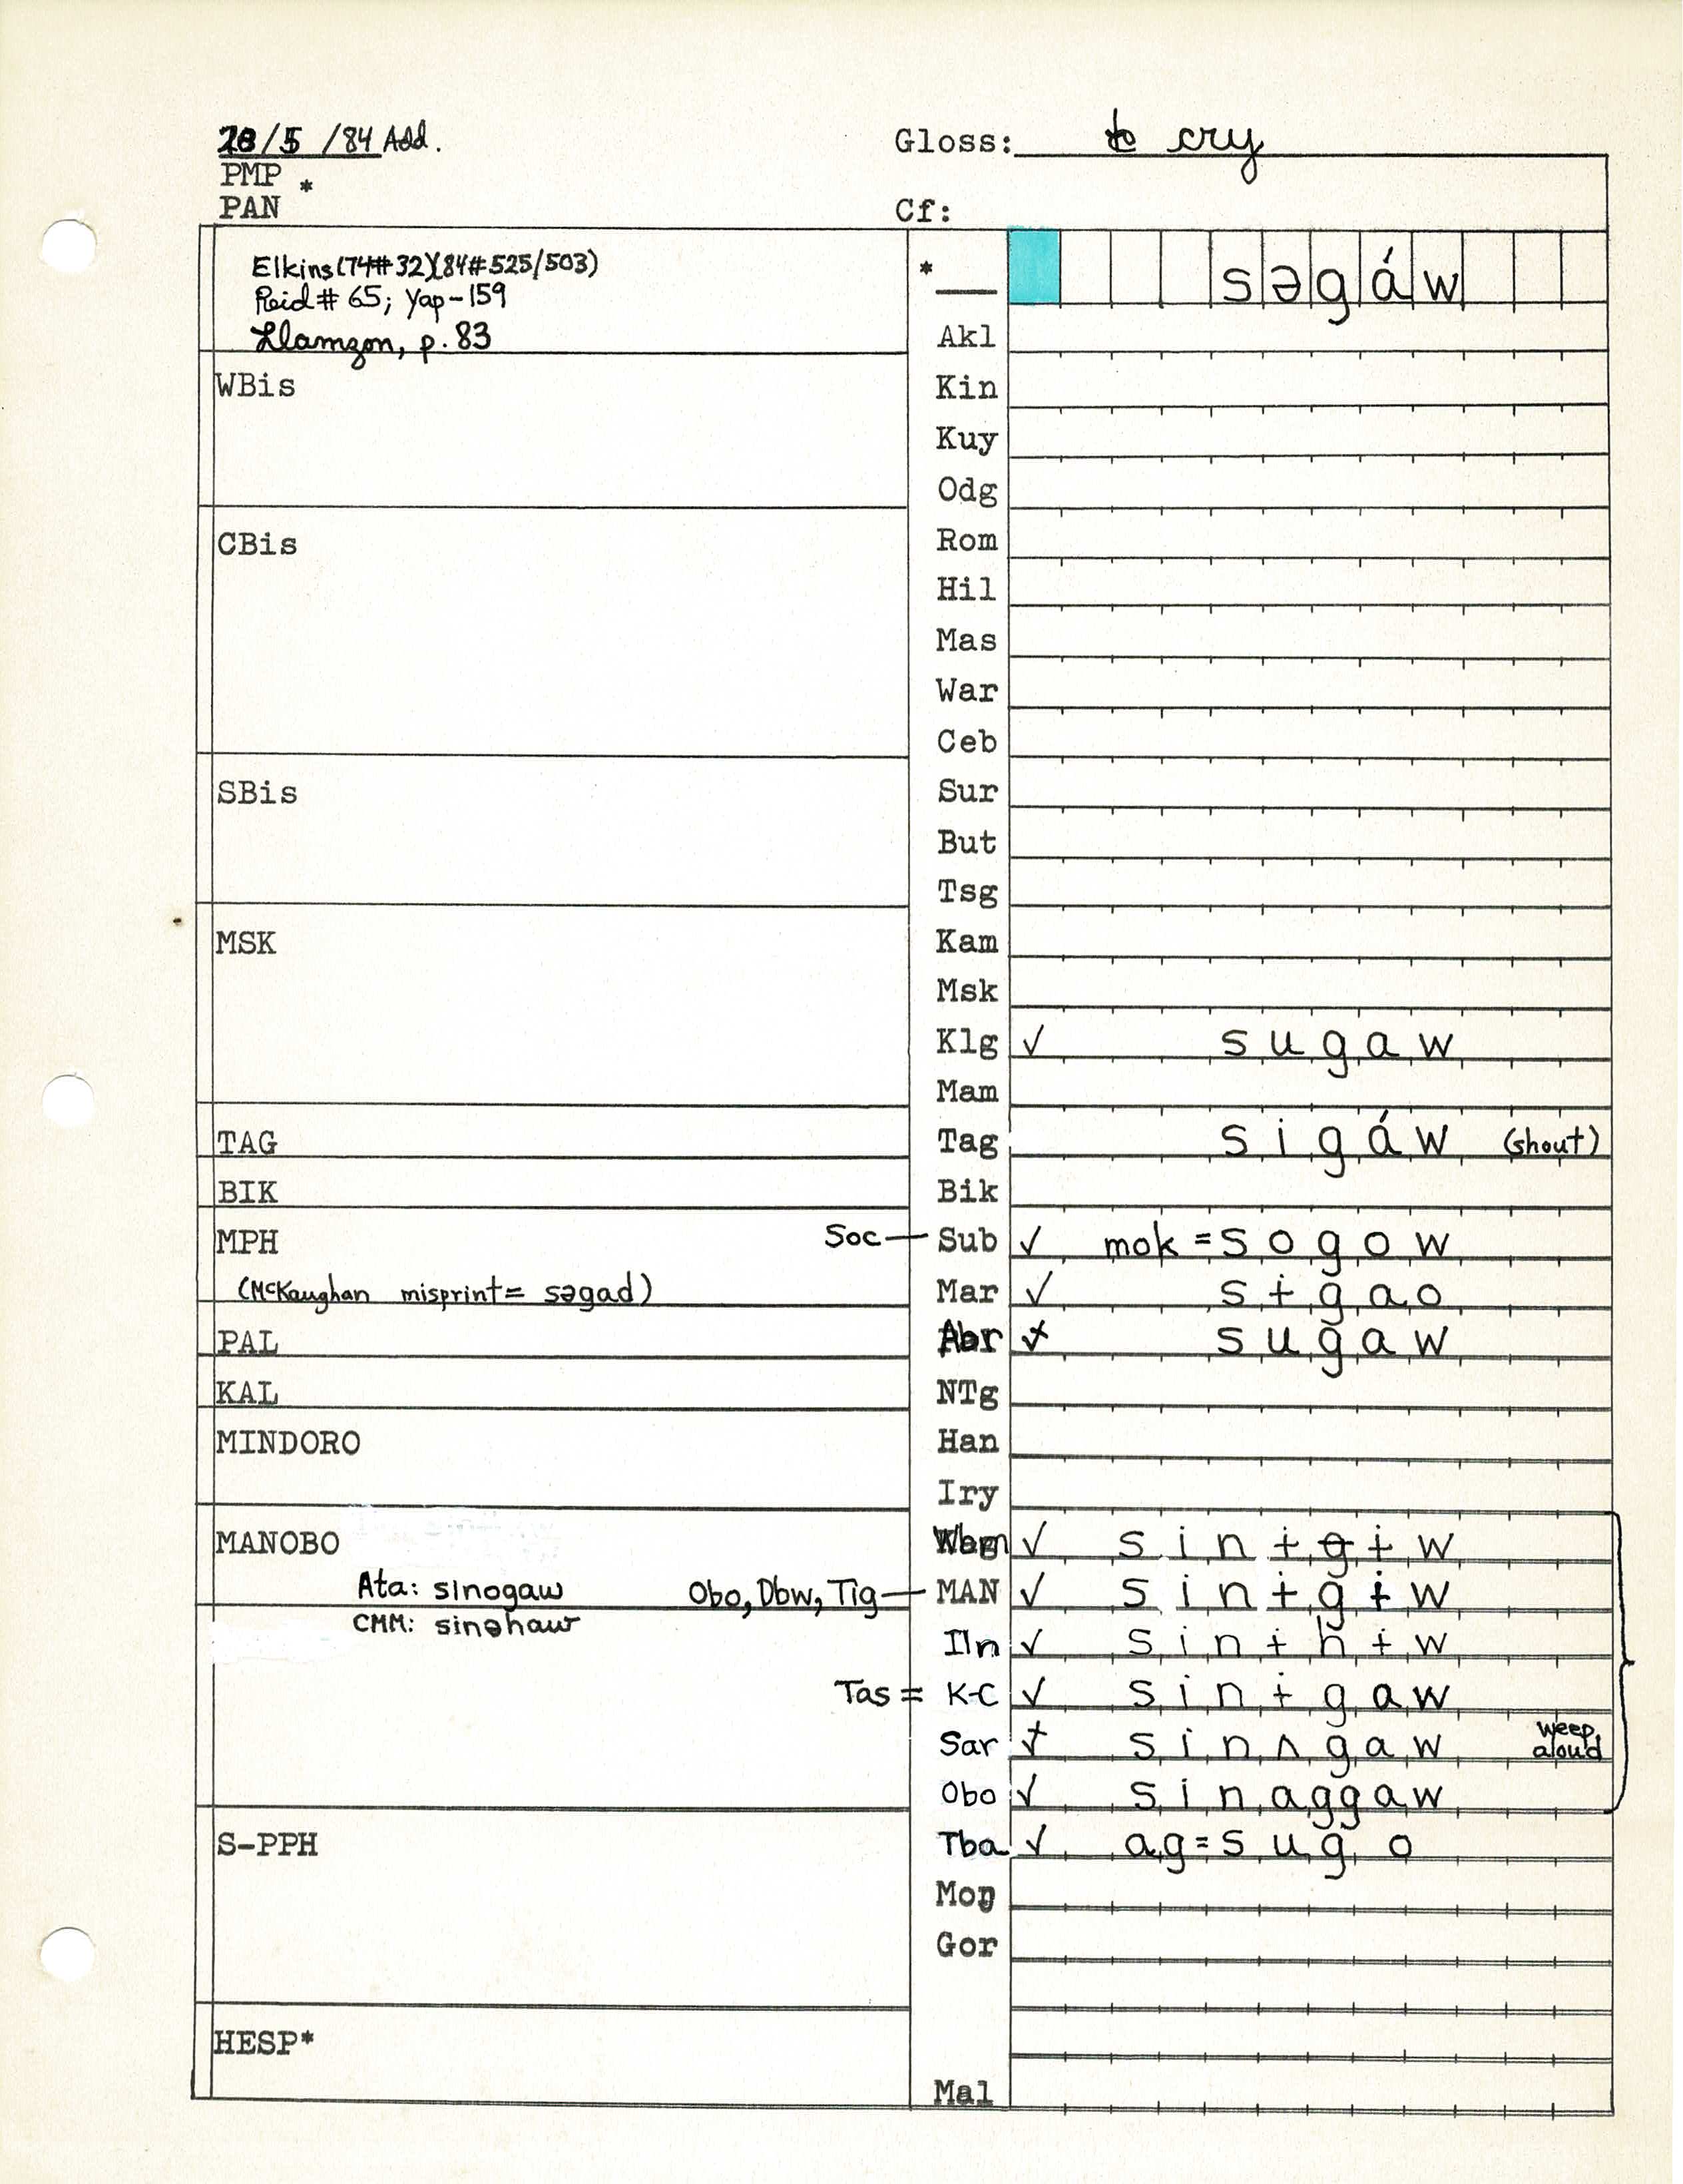 28/5 /84 Add.
Gloss: to cry
PMP *
PAN
Cf:
Elkins(74#32)(84#525/503)
Reid# 65; Yap-159
Llamzon, p. 83
* səgáw
Akl
WBis
Kin
Kuy
Odg
CBis
Rom
Hil
Mas
War
Ceb
SBis
Sur
But
Tsg
MSK
Kam
Msk
Klg ✓ sugaw
Mam
TAG
Tag sigáw (shout)
BIK
Bik
MPH Soc — Sub ✓ mok=sogow
(McKaughan misprint= səgad) Mar ✓ sɨgao
PAL
Abr ✓ sugaw
KAL
NTg
MINDORO
Han
Iry
MANOBO
✓ sinɨgɨw
Ata: sinogaw Obo, Dbw, Tig — MAN ✓ sinɨgɨw
CMM: sinəhaw
Iln ✓ sinɨhɨw
Tas = K-C ✓ sinɨgaw
Sar ✓ sinʌgaw weep aloud
Obo ✓ sinaggaw
S-PPH
Tba ✓ ag=sugo
Moŋ
Gor
HESP*
Mal